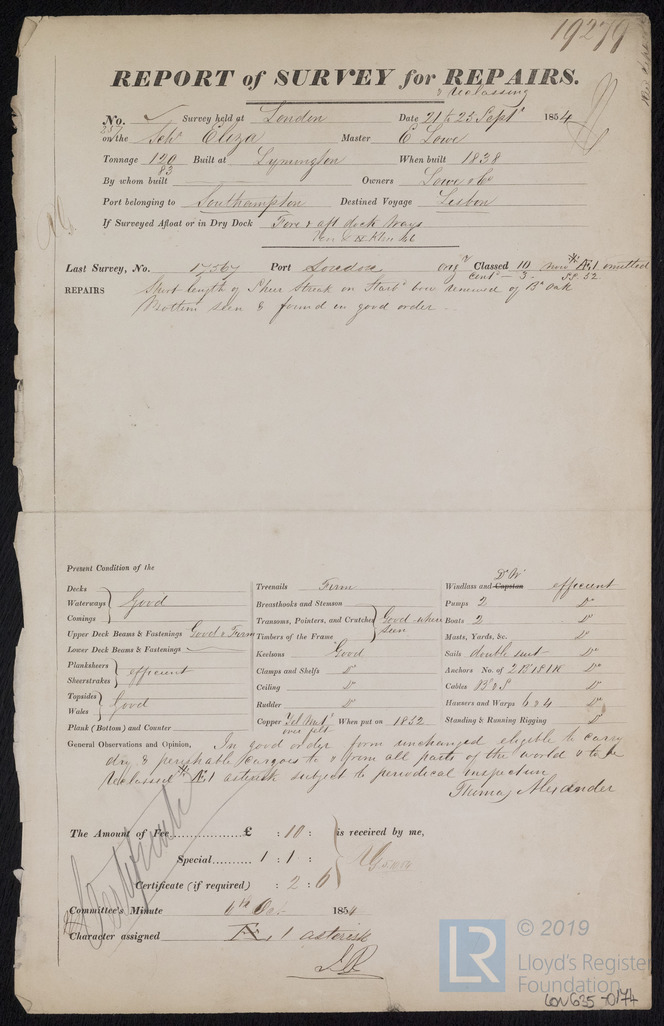 19279
REPORT of SURVEY for REPAIRS.
& reclassing
No. Survey held at London Date 21 & 25 Septr 1854
on the Schr Eliza Master E Lowe
Tonnage 120 Built at Lymington When built 1838
83
By whom built Owners Lowe & Co
Port belonging to Southampton Destined Voyage Lisbon
If Surveyed Afloat or in Dry Dock Fore & aft dock ways
Last Survey, No. 17567 Port London Classed 10 now Æ1 omitted
contd 3
REPAIRS Short length of Sheer Streak on Starbd bow renewed of Bk Oak
Bottom seen & found in good order
Present Condition of the
Decks
Waterways Good
Comings
Upper Deck Beams & Fastenings Good & Firm
Lower Deck Beams & Fastenings
Planksheers
Sheerstrakes efficient
Topsides
Wales Good
Plank (Bottom) and Counter
Treenails Firm
Breasthooks and Stemson
Transoms, Pointers, and Crutches Good where
Timbers of the Frame seen
Keelsons Good
Clamps and Shelfs Do
Ceiling Do
Rudder Do
Copper Yel Metl When put on 1852
over felt
Windlass and Capstan efficient
Pumps 2 Do
Boats 2 Do
Masts, Yards, &c. Do
Sails double suit Do
Anchors No. of 2B 1S 1K Do
Cables Do
Hawsers and Warps 6 & 4 Do
Standing & Running Rigging Do
General Observations and Opinion, In good order form unchanged eligible to carry
dry & perishable cargoes to & from all parts of the world & to be
reclassed Æ1 asterisk subject to periodical inspection
Thomas Alexander
The Amount of Fee £ : 10 : is received by me,
Special 1 : 1 :
Certificate (if required) : 2 : 6
Committee's Minute 6th Oct 1854
Character assigned Æ 1 asterisk
LR
© 2019
Lloyd's Register
Foundation
LON635-0174